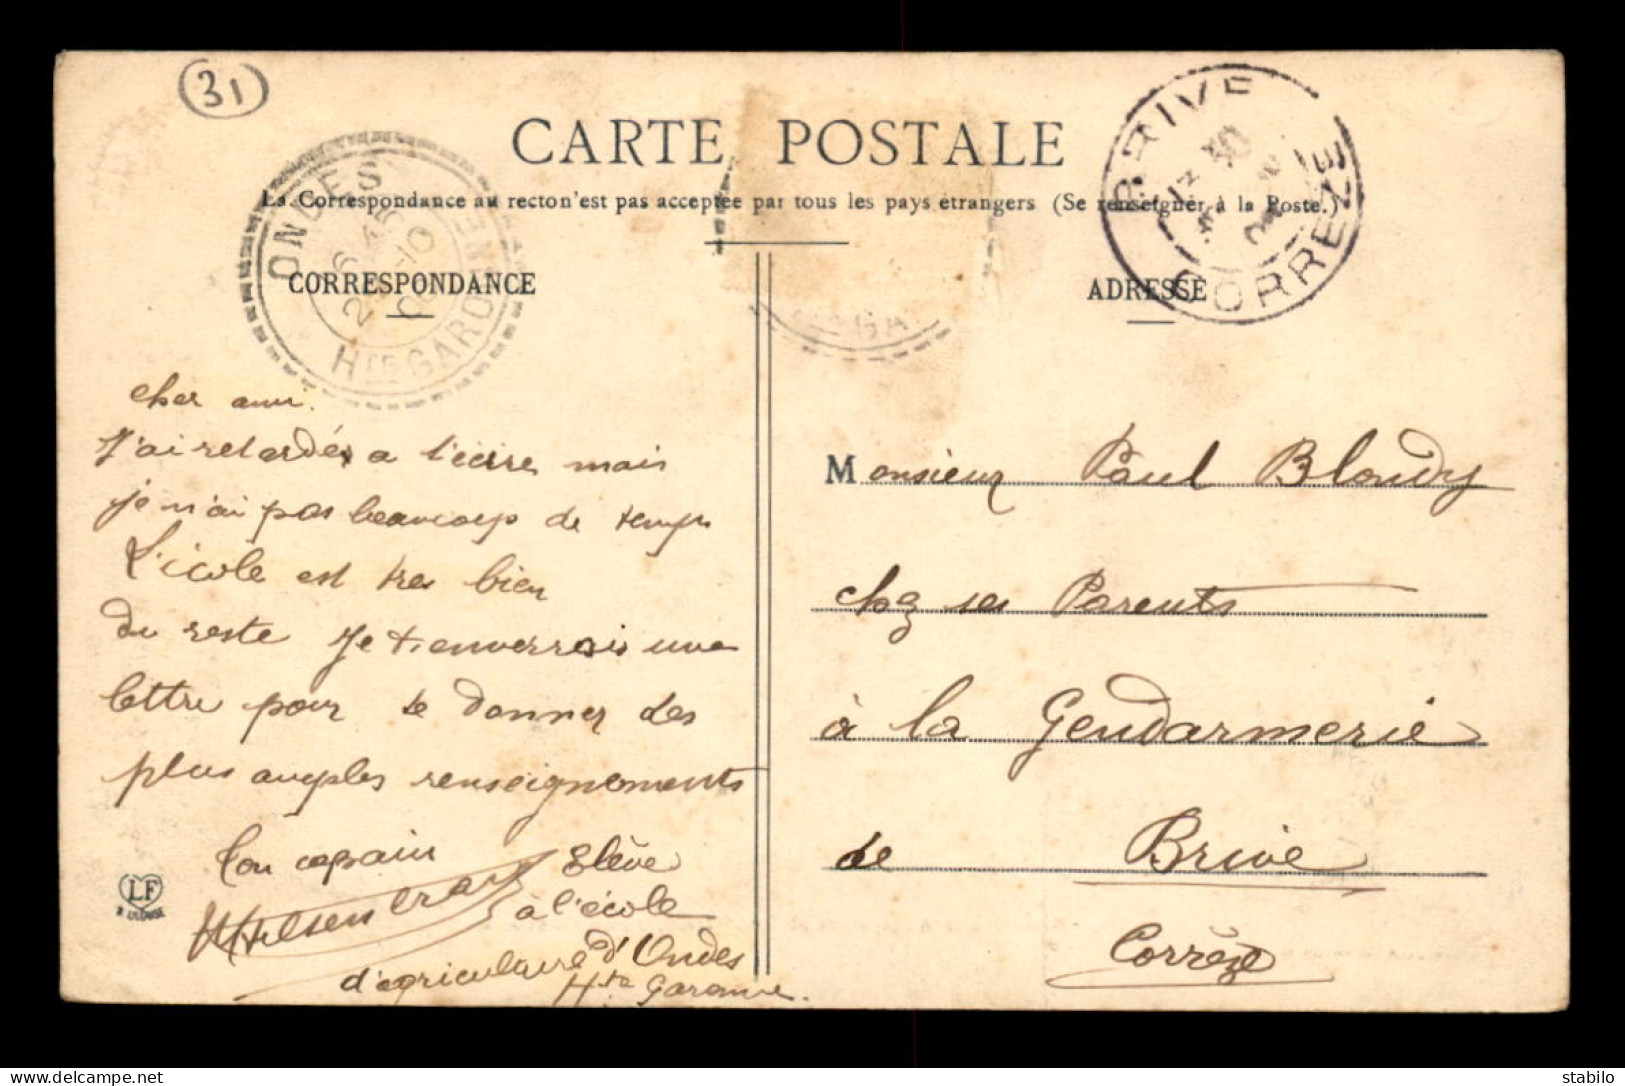 31
CARTE POSTALE
La Correspondance au recto n'est pas acceptée par tous les pays étrangers (Se renseigner à la Poste.)
ONDES
6 45
2 -10
Hte GARONNE
Hte GA
BRIVE
CORREZE
CORRESPONDANCE
ADRESSE
cher ami.
J'ai retardé a t'ecrire mais
je n'ai pas beaucoup de temps
L'école est tres bien
du reste Je t'enverrais une
lettre pour te donner des
plus amples renseignements
Ton copain
Elève
à l'école
d'agriculture d'Ondes
Hte Garonne.
LF
TOULOUSE
Monsieur Paul Blondy
chez ses Parents
à la Gendarmerie
de Brive
Corrèze
stabilo